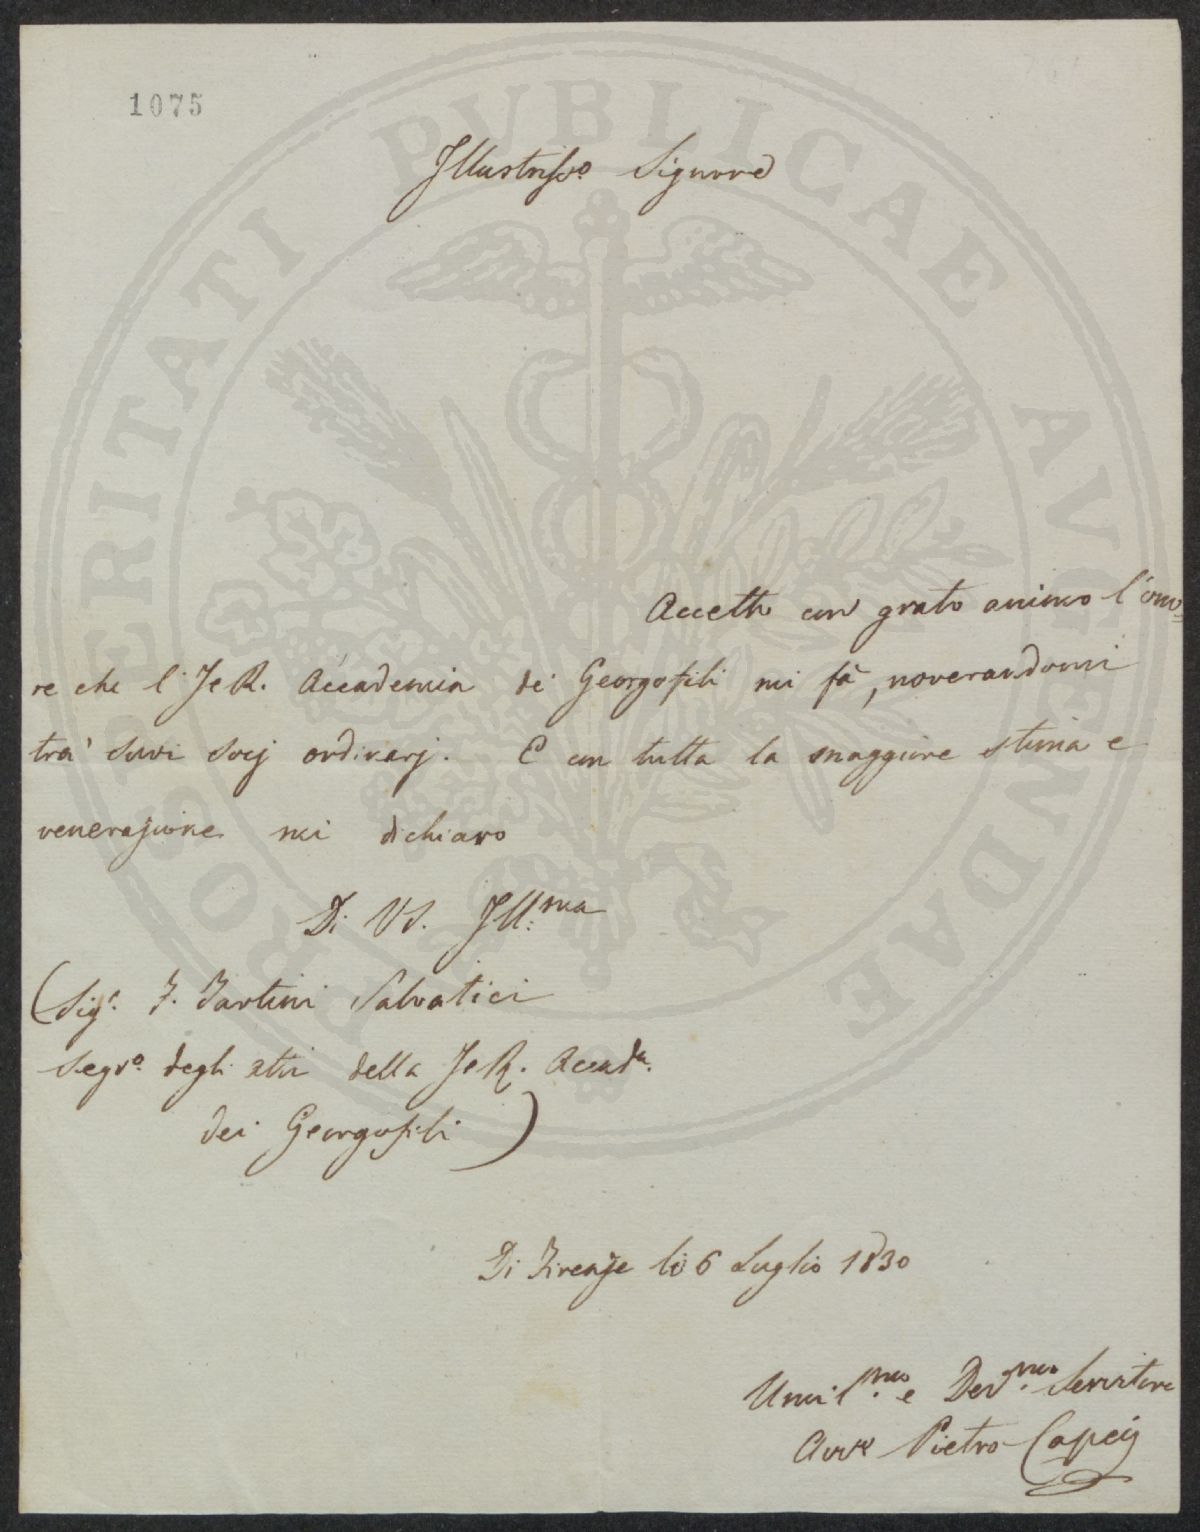 1075
Illustriss.o Signore
Accetto con grato animo l'ono=
re che l'I e R. Accademia dei Georgofili mi fà, noverandomi
tra' suoi socj ordinarj. E con tutta la maggiore stima e
venerazione mi dichiaro
Di VS. Ill:ma
(Sig.r F. Tartini Salvatici
Segr.o degli atti della I e R. Accad.a
dei Georgofili)
Di Firenze li 6 Luglio 1830
Umil.mo e Dev.mo Servitore
Avv.o Pietro Capei
PROSPERITATI PUBLICAE AVGENDAE